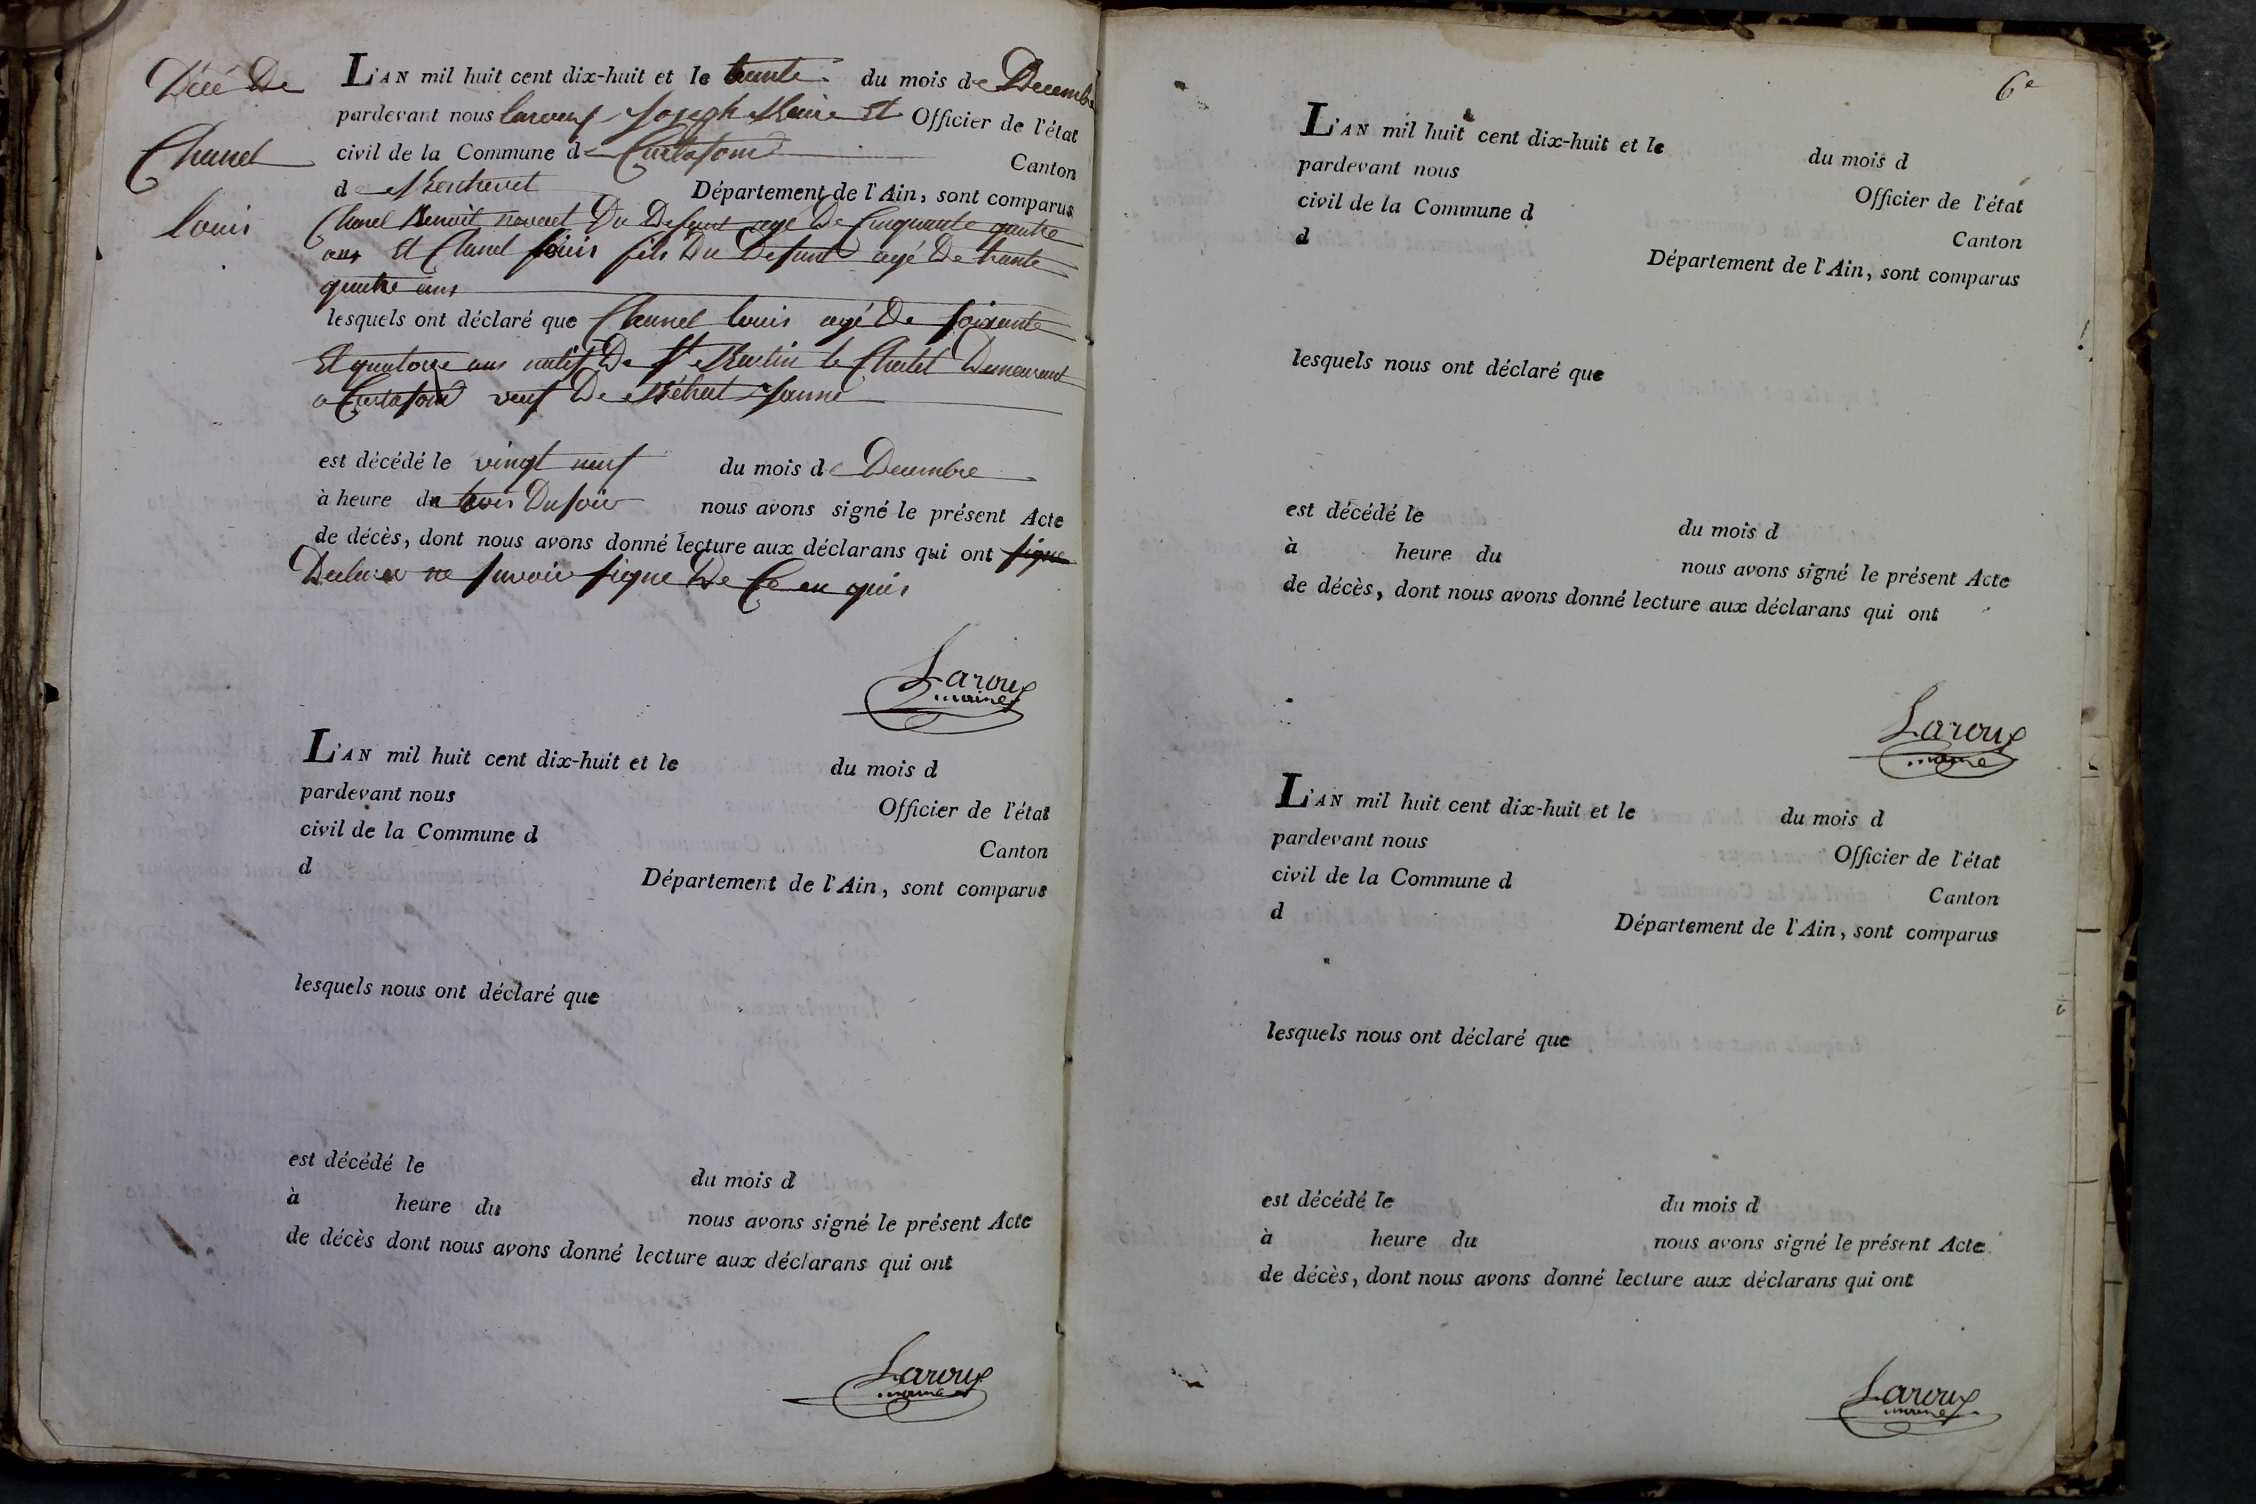 Décé De
Chanel
louis
L'AN mil huit cent dix-huit et le trente du mois de Decembre
pardevant nous laroux Joseph Maire et Officier de l'état
civil de la Commune de Curtafond Canton
de Montrevel Département de l'Ain, sont comparus
Chanel Benoit neveu Du Defunt agé De Cinquante quatre
ans Et Chanel louis fils Du Defunt agé De trente
quatre ans
lesquels ont déclaré que Chanel louis agé De soixante
Et quatorze ans natif De St Martin le Chatel Demeurant
a Curtafond veuf De Jeanne
est décédé le vingt neuf du mois de Decembre
à heure de trois Du soir nous avons signé le présent Acte
de décès, dont nous avons donné lecture aux déclarans qui ont signe
Declarer ne savoir signe De Ce en quis
Laroux
maire
L'AN mil huit cent dix-huit et le du mois d
pardevant nous Officier de l'état
civil de la Commune d Canton
d Département de l'Ain, sont comparus
lesquels nous ont déclaré que
est décédé le du mois d
à heure du nous avons signé le présent Acte
de décès dont nous avons donné lecture aux déclarans qui ont
Laroux
maire
6e
L'AN mil huit cent dix-huit et le du mois d
pardevant nous Officier de l'état
civil de la Commune d Canton
d Département de l'Ain, sont comparus
lesquels nous ont déclaré que
est décédé le du mois d
à heure du nous avons signé le présent Acte
de décès, dont nous avons donné lecture aux déclarans qui ont
Laroux
maire
L'AN mil huit cent dix-huit et le du mois d
pardevant nous Officier de l'état
civil de la Commune d Canton
d Département de l'Ain, sont comparus
lesquels nous ont déclaré que
est décédé le du mois d
à heure du nous avons signé le présent Acte
de décès, dont nous avons donné lecture aux déclarans qui ont
Laroux
maire